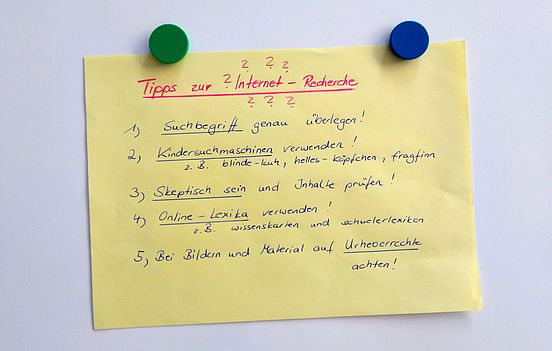 ? ? ?
Tipps zur ? Internet - Recherche
? ? ?
1) Suchbegriff genau überlegen!
2) Kindersuchmaschinen verwenden!
z.B. blinde-kuh, helles-köpfchen, fragfinn
3) Skeptisch sein und Inhalte prüfen!
4) Online-Lexika verwenden!
z.B. wissenskarten und schuelerlexikon
5) Bei Bildern und Material auf Urheberrechte
achten!